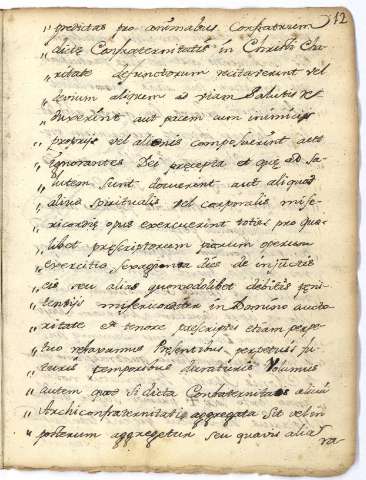 12
„ predictas pro animabus Confratrum
„ dictæ Confraternitatis in Christi Cha-
„ ritate defunctorum recitaverint vel
„ devium aliquem ad viam Salutis re-
„ duxerint aut pacem cum inimicis
„ proprijs vel alienis composuerint aut
„ ignorantes Dei precepta et quę ad sa-
„ lutem sunt docuerint aut aliquod
„ aliud spiritualis vel corporalis mise-
„ ricordię opus exercuerint toties pro quo-
„ libet prescriptorum piorum operum
„ exercitio sexaginta dies de injunctis
„ eis seu alias quomodolibet debitis peni-
„ tentijs misericorditer in Domino aucto-
„ ritate et tenore prescriptis etiam perpe-
„ tuo relaxamus Presentibus perpetuis fu-
„ turis temporibus duraturis Volumus
„ autem quod si dicta Confraternitas alicui
„ Archiconfraternitatis aggregata sit vel in
„ posterum aggregetur seu quavis alia
ra-